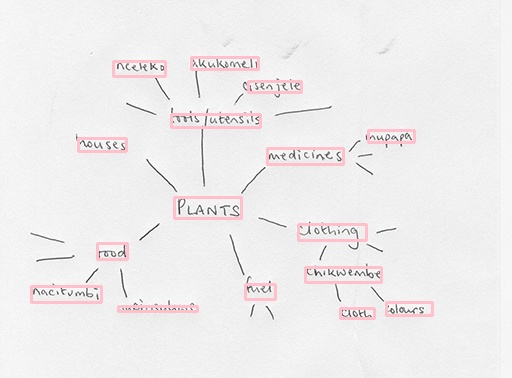 nceleko
cisenjele
tools/utensils
houses
mupapa
medicines
PLANTS
clothing
food
chikwembe
fuel
nacitumbi
cloth
colours